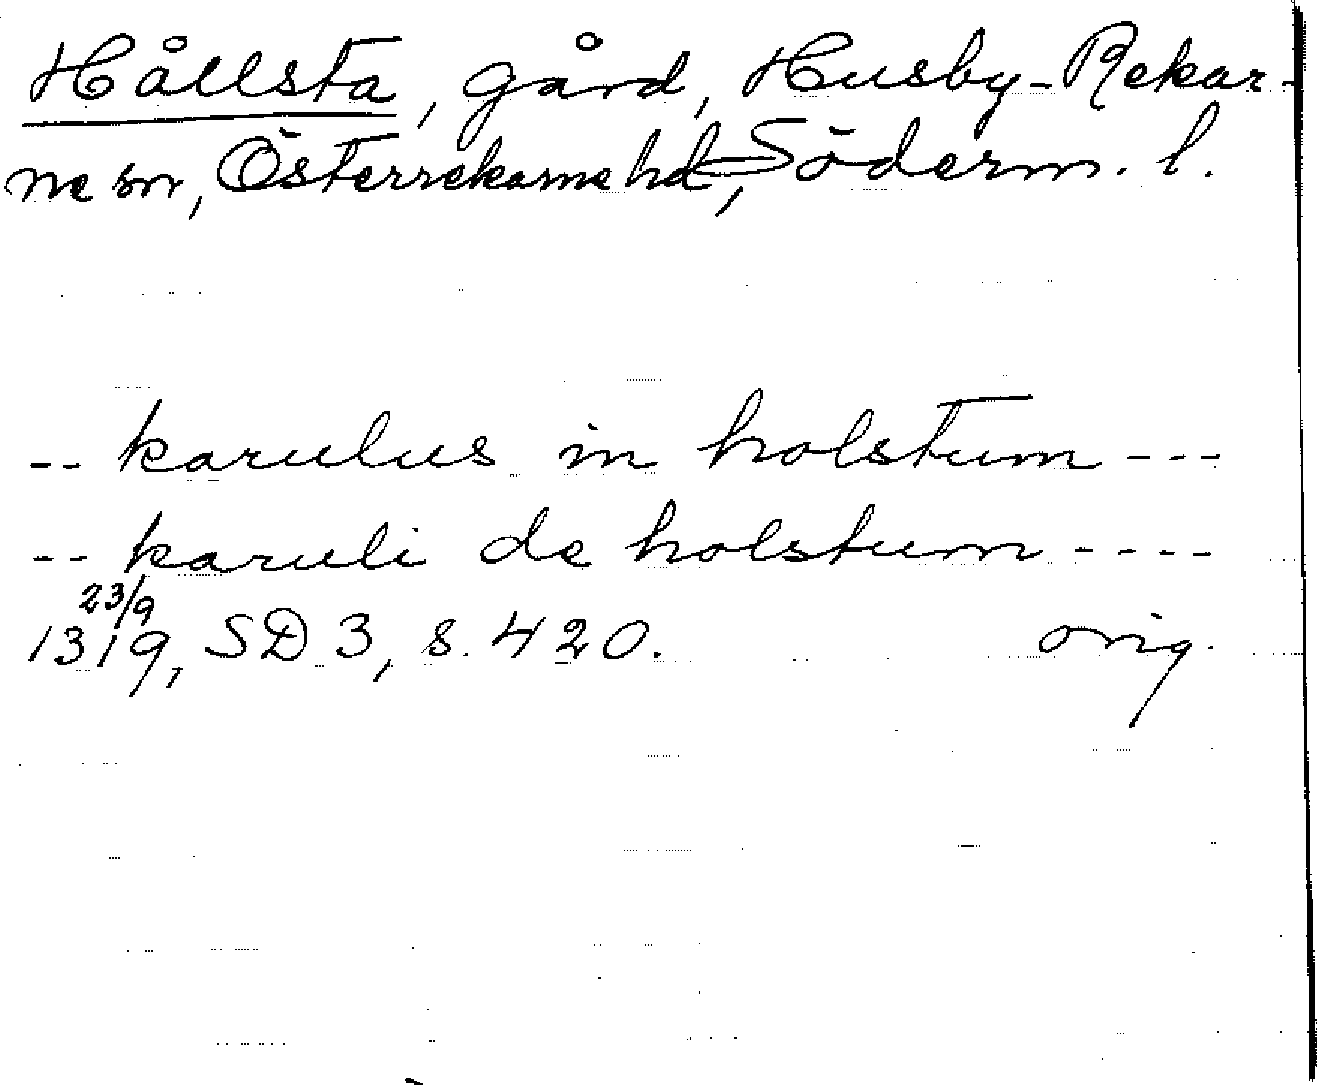 Hållsta, gård, Husby-Rekar-
ne sn, Österrekarne hd, Söderm. l.
-- karulus in holstum ---
-- karuli de holstum ----
23/9
1319, SD 3, s. 420. orig.